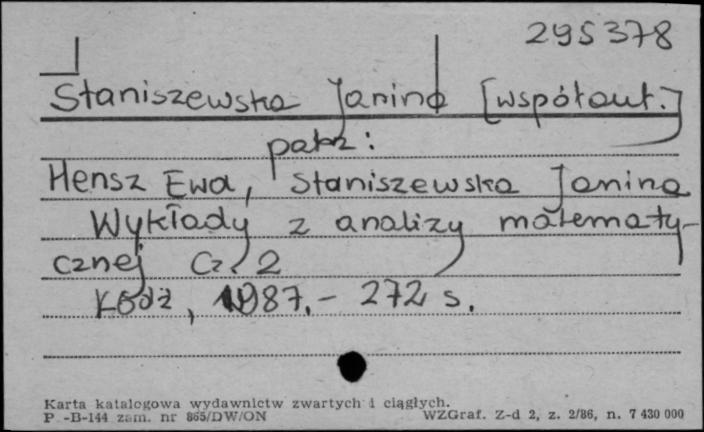 295378
Staniszewska Janina [współaut.]
patrz:
Hensz Ewa, Staniszewska Janina
Wykłady z analizy matematy-
cznej Cz. 2
Łódź, 1987.- 272 s.
Karta katalogowa wydawnictw zwartych i ciągłych.
P.-B-144 zam. nr 865/DW/ON WZGraf. Z-d 2, z. 2/86, n. 7 430 000